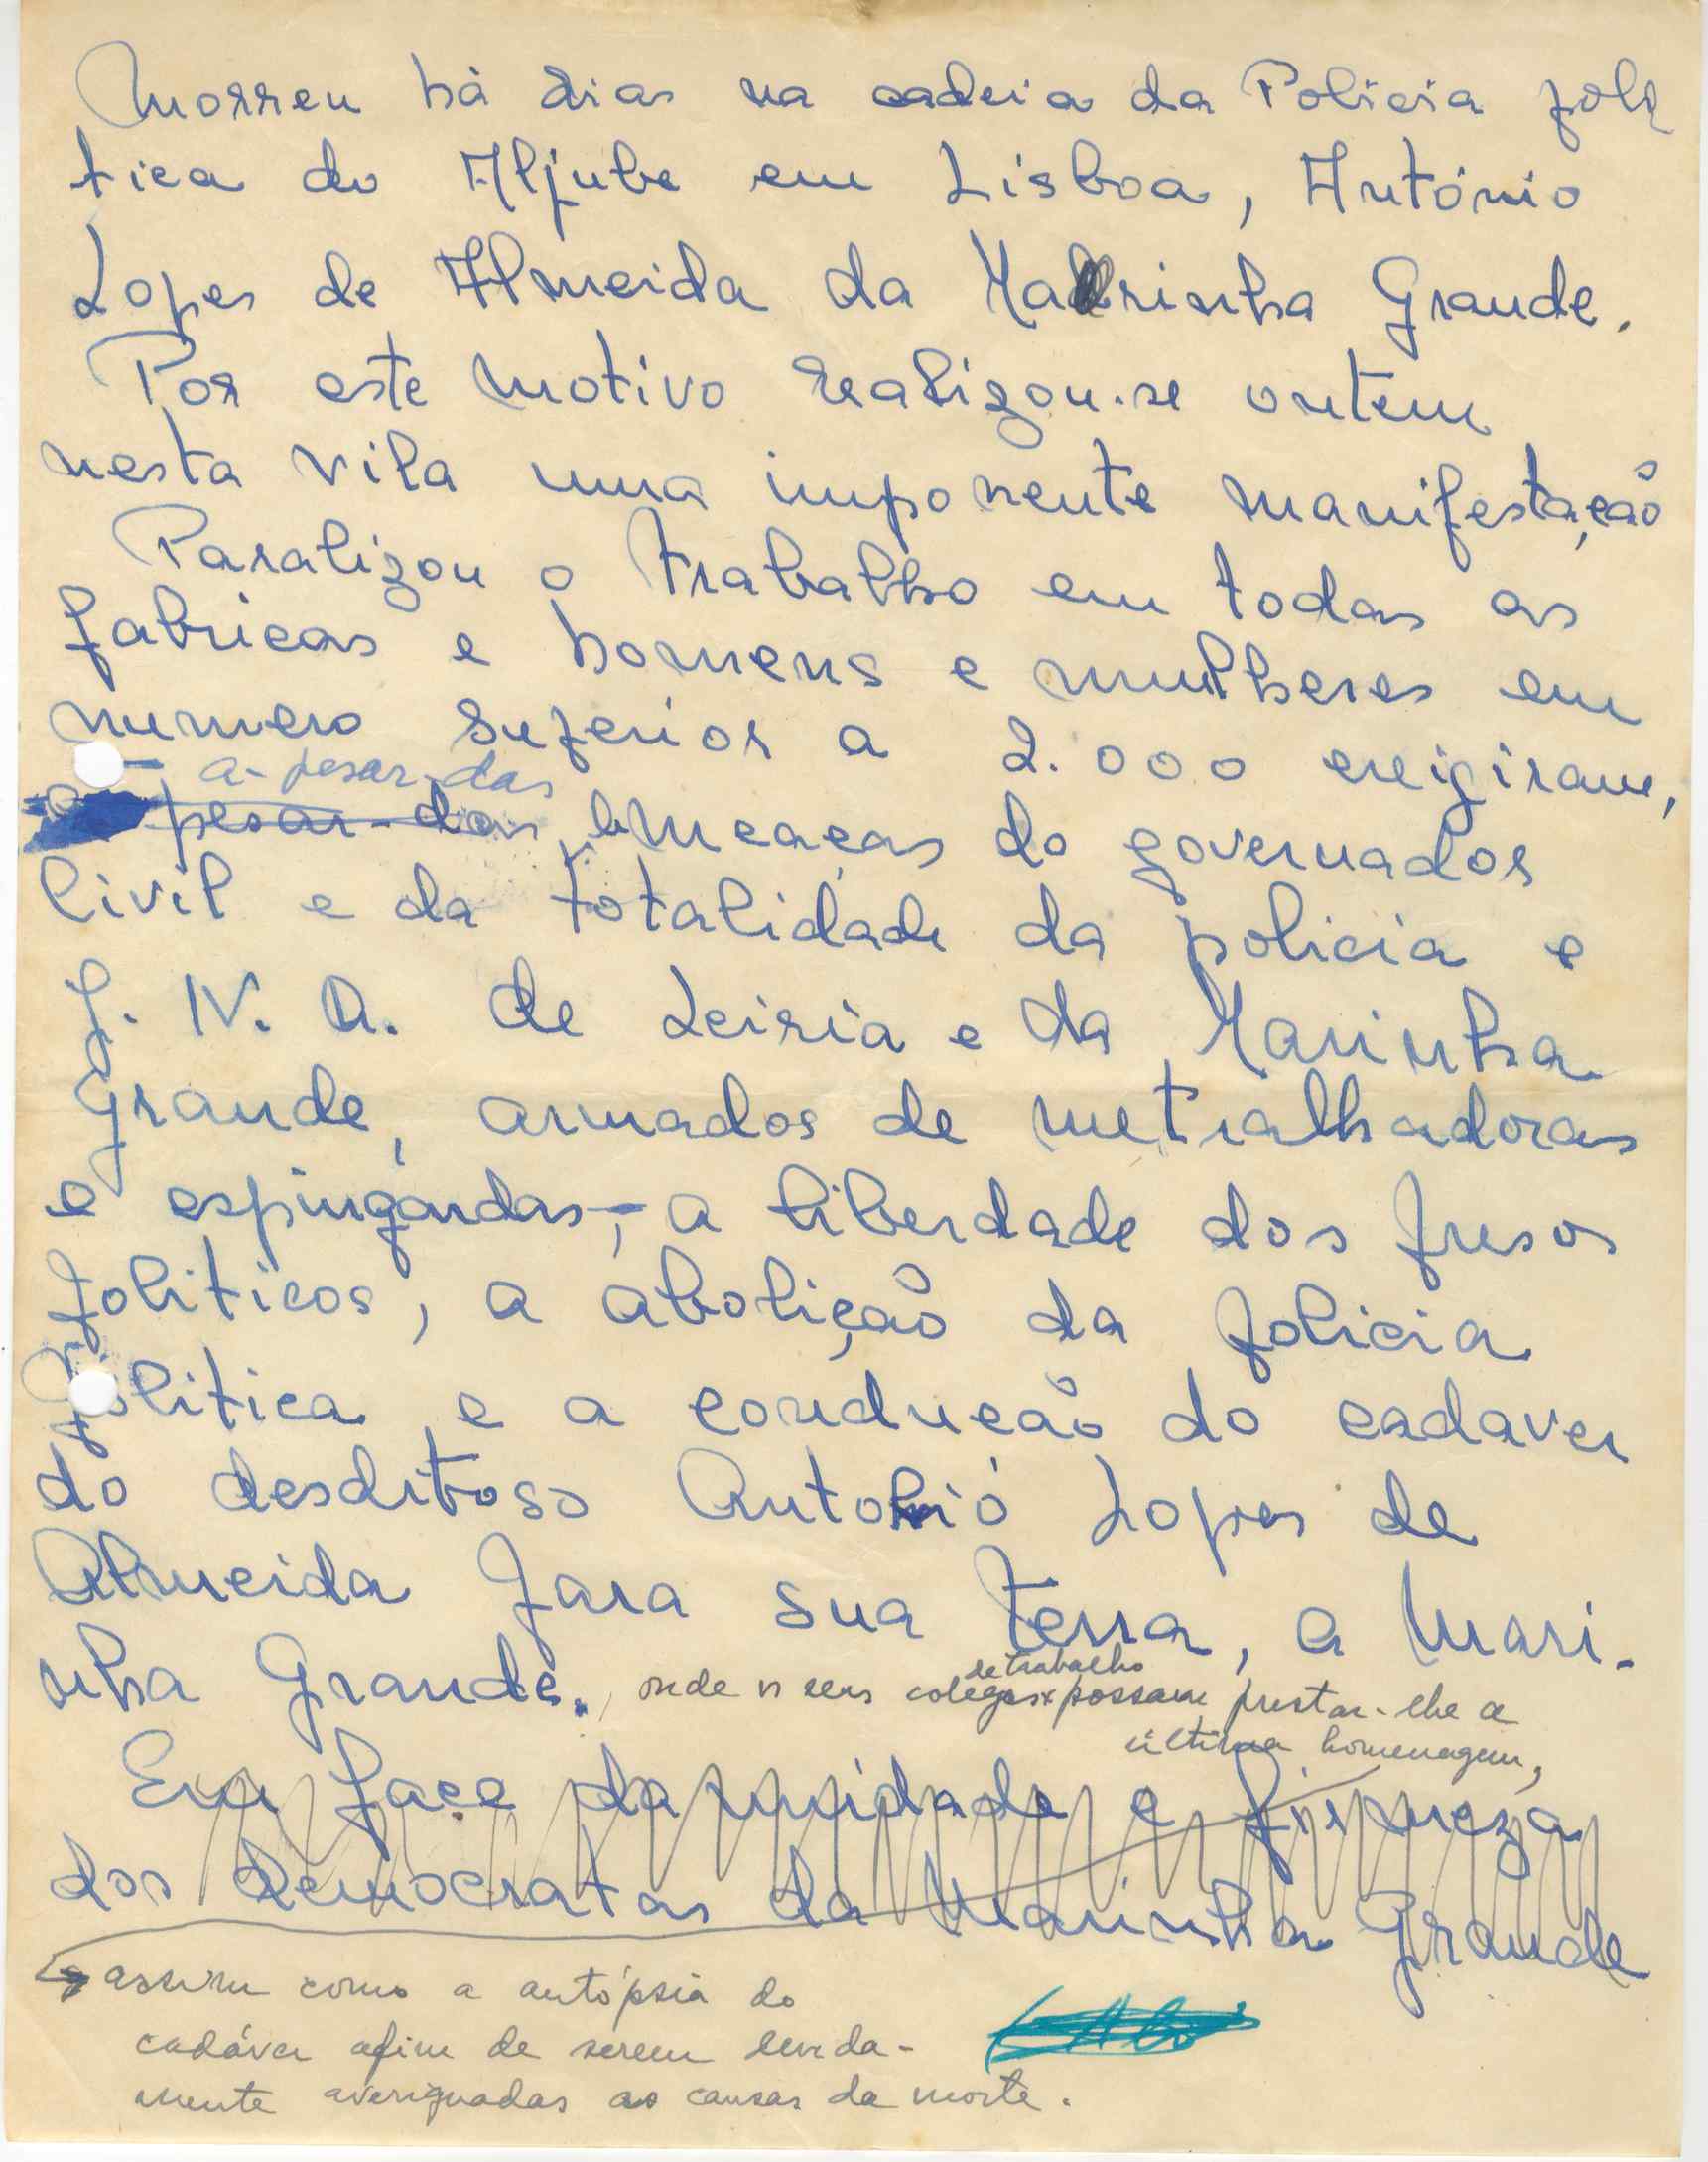 Morreu há dias na cadeia da Policia poli
tica do Aljube em Lisboa, António
Lopes de Almeida da Marinha Grande.
Por este motivo realizou-se ontem
nesta vila uma imponente manifestação
Paralizou o trabalho em todas as
fabricas e homens e mulheres em
numero superior a 2.000 exigiram,
- a-pesar-das
pesar-das ameaças do governador
Civil e da totalidade da policia e
G. N. R. de Leiria e da Marinha
Grande, armados de metralhadoras
e espingardas-, a liberdade dos presos
politicos, a abolição da policia
politica e a condução do cadaver
do desditoso Antonio Lopes de
Almeida para sua terra, a Mari-
nha Grande, onde os seus colegas de trabalho possam prestar-lhe a
última homenagem,
Em face da unidade e firmeza
dos democratas da Marinha Grande
assim como a autópsia do
cadáver afim de serem devida-
mente averiguadas as causas da morte.